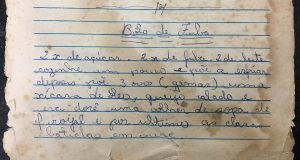 Bolo de Fubá
2 x de açúcar, 2 x de fubá, 2 de leite
cozinhe um pouco e põe a esfriar
depois põe 3 ovos (gemas) uma
xícara de queijo ralado e
uma colher de sopa de
e por ultimo as claras
batidas em neve